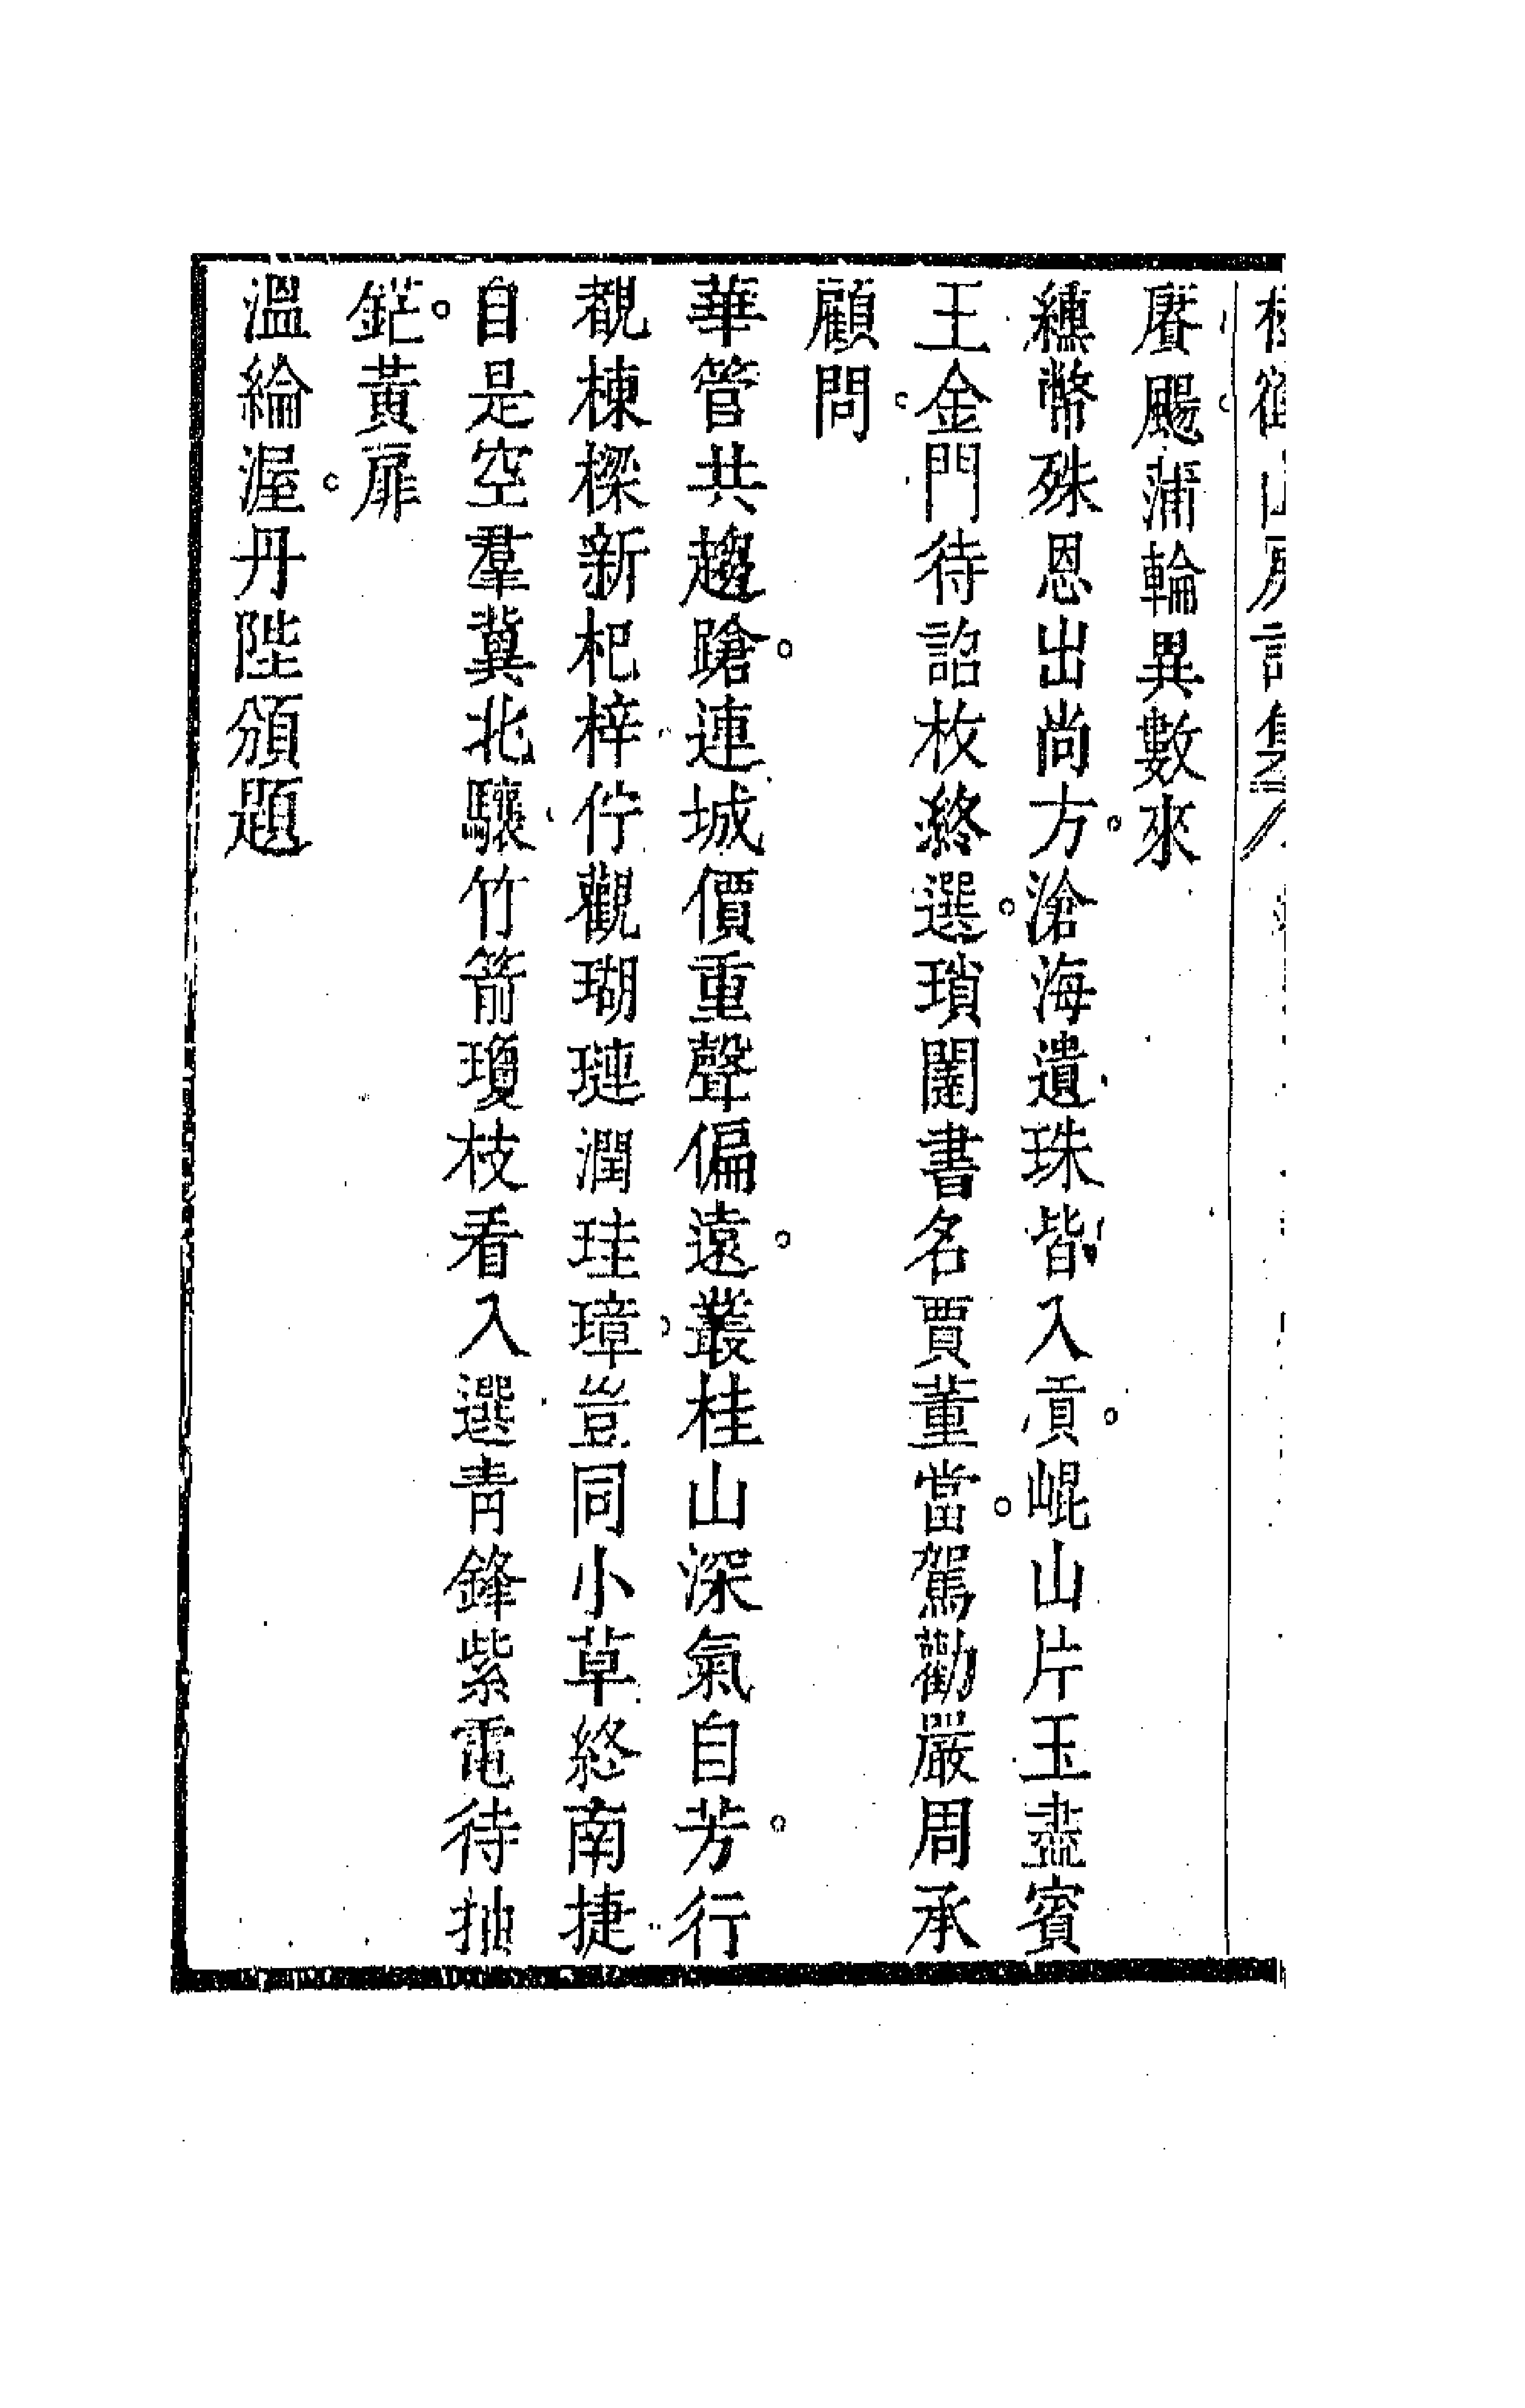 賡颺蒲輪異數來
纁幣殊恩出尚方。滄海遺珠皆入貢。崐山片玉盡賓
王。金門待詔枚終選。瑣闥書名賈董當。駕勸嚴周承
顧問
華管共趨蹌。連城價重聲偏遠。叢桂山深氣自芳。行
覩棟樑新杞梓佇觀瑚璉潤珪璋。豈同小草終南捷
自是空羣冀北驤竹箭瓊枝看入選青鋒紫電待抽
鋩。黃扉
溫綸渥。丹陛頒題